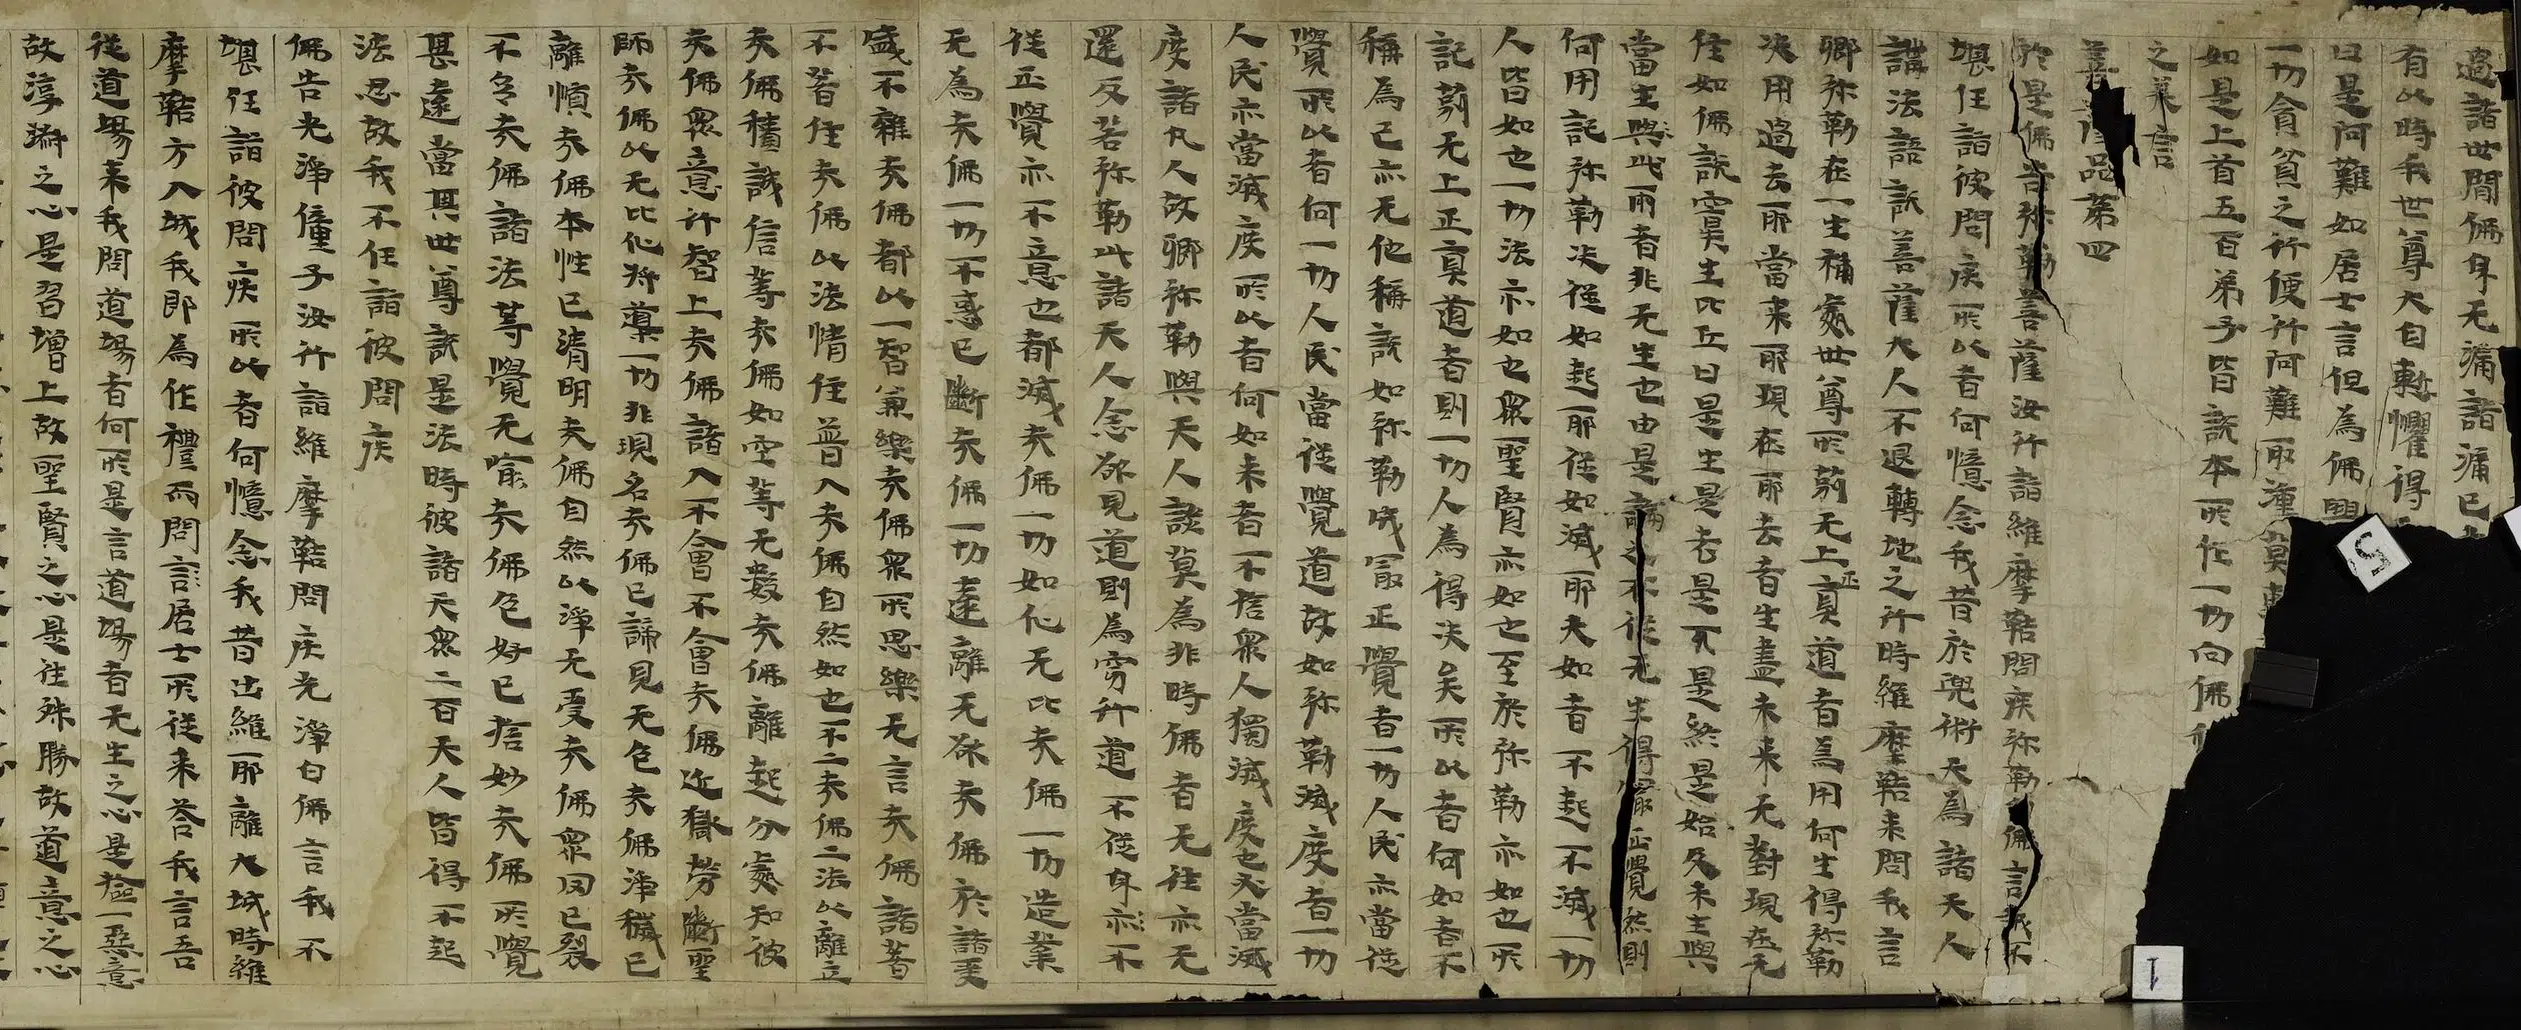 過諸世間佛身无漏諸漏已
有此時我世尊大自慙懼得
曰是何難如居士言但為佛興
一切貪貧之行便行阿難取湩莫
如是上首五百弟子皆說本所作一切向佛稱
之美言
菩薩品第四
於是佛告弥勒菩薩汝行詣維摩鞊問疾弥勒白佛言我不
堪任詣彼問疾所以者何憶念我昔於兜術天為諸天人
講法語說菩薩大人不退轉地之行時維摩鞊来問我言
卿弥勒在一生補處世尊所莂无上正真道者為用何生得弥勒
決用過去耶當来耶現在耶去者生盡未来无對現在无
住如佛說寞生比丘曰是生是老是死是終是始及未生與
當生與此兩者非无生也由是論之不從无生得冣正覺然則
何用記弥勒決從如起耶從如滅耶夫如者不起不滅一切
人皆如也一切法亦如也眾聖賢亦如也至於弥勒亦如也所
記莂无上正真道者則一切人為得決矣所以者何如者不
稱為已亦无他稱說如弥勒成冣正覺者一切人民亦當從
覺所以者何一切人民當從覺道故如弥勒滅度者一切
人民亦當滅度所以者何如来者不捨眾人獨滅度也夫當滅
度諸凡人故卿弥勒與天人談莫為非時佛者无往亦无
還反若弥勒此諸天人念欲見道則為穷行道不從身亦不
從正覺亦不意也都滅夫佛一切如化无比夫佛一切造業
无為夫佛一切不惑已斷夫佛一切遠離无欲夫佛於諸更
盛不雜夫佛都以一智兼樂夫佛眾所思樂无言夫佛諸著
不著住夫佛以法情住普入夫佛自然如也不二夫佛二法以離立
夫佛積誠信等夫佛如空等无數夫佛離起分處知彼
夫佛眾意行智上夫佛諸入不會不會夫佛近獄勞斷聖
師夫佛以无比化將䆃一切非現名夫佛已諦見无色夫佛淨穢已
離順夫佛本性已清明夫佛自然以淨无受夫佛眾网已裂
不多夫佛諸法等覺无喻夫佛色好已捨妙夫佛所覺
甚遠當其世尊說是法時彼諸天眾二百天人皆得不起
法忍故我不任詣彼問疾
佛告光淨僮子汝行詣維摩鞊問疾光淨白佛言我不
堪任詣彼問疾所以者何憶念我昔出維耶離大城時維
摩鞊方入城我即為作禮而問言居士所從来答我言吾
從道場来我問道場者何所是言道場者无生之心是撿一惡意
故淳淑之心是習增上故聖賢之心是往殊勝故道意之心